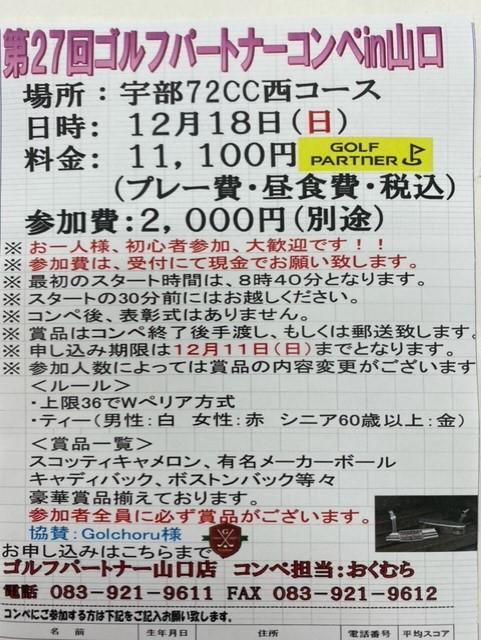 第27回ゴルフパートナーコンペin山口
場所：宇部72CC西コース
日時：12月18日(日)
料金：11,100円
GOLF
PARTNER
(プレー費・昼食費・税込)
参加費：2,000円(別途)
※ お一人様、初心者参加、大歓迎です！！
※ 参加費は、受付にて現金でお願い致します。
※ 最初のスタート時間は、8時40分となります。
※ スタートの30分前にはお越しください。
※ コンペ後、表彰式はありません。
※ 賞品はコンペ終了後手渡し、もしくは郵送致します。
※ 申し込み期限は12月11日(日)までとなります。
※ 参加人数によっては賞品の内容変更がございます
＜ルール＞
・上限36でWペリア方式
・ティー(男性：白 女性：赤 シニア60歳以上：金)
＜賞品一覧＞
スコッティキャメロン、有名メーカーボール
キャディバック、ボストンバック等々
豪華賞品揃えております。
参加者全員に必ず賞品がございます。
協賛：Golchoru様
お申し込みはこちらまで
ゴルフパートナー山口店 コンペ担当：おくむら
電話 083-921-9611 FAX 083-921-9612
コンペにご参加する方は下記をご記入お願い致します。
名前 生年月日 住所 電話番号 平均スコア